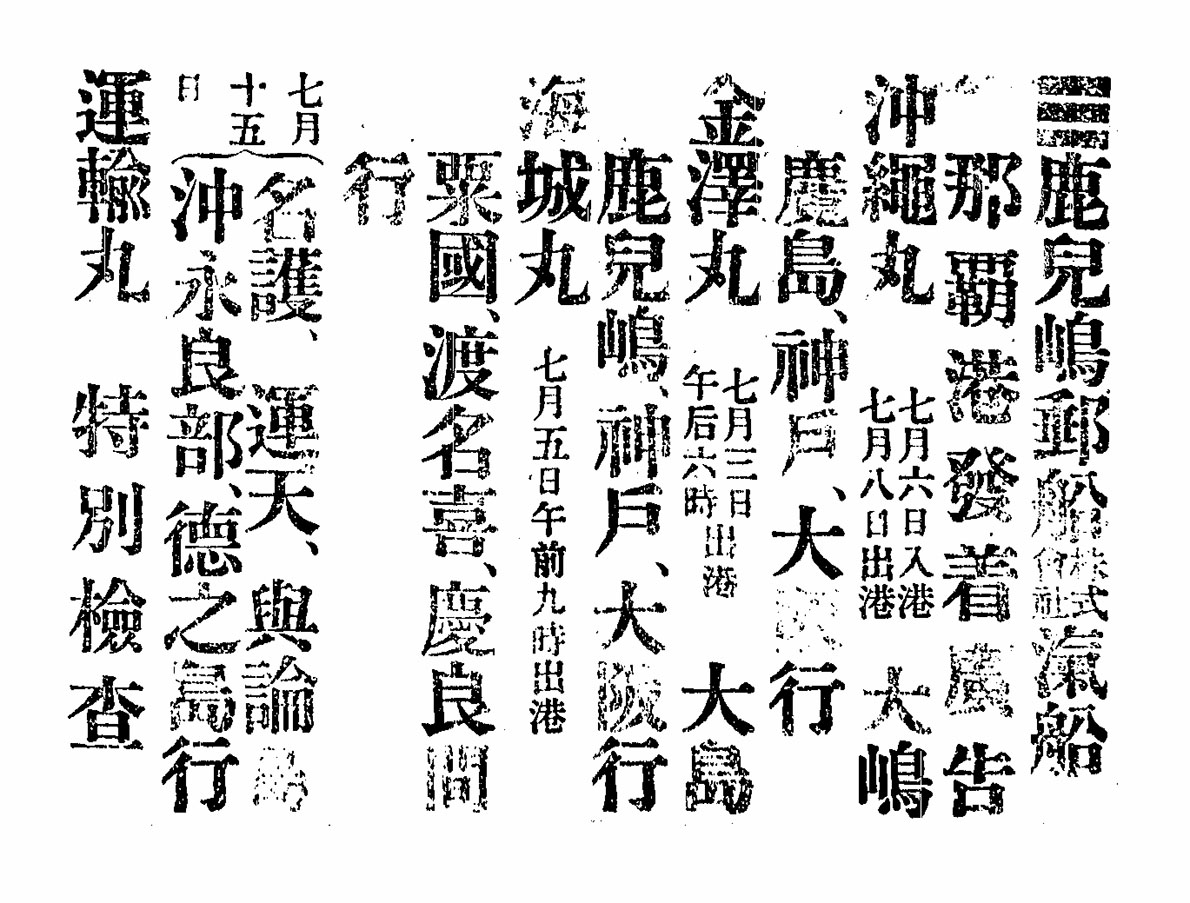 鹿兒嶋郵船株式會社滊船
那覇港發着廣告
沖繩丸 七月六日入港 七月八日出港 大嶋
鹿島、神戸、大阪行
金澤丸 七月三日午后六時出港 大島
鹿兒嶋、神戸、大阪行
海城丸 七月五日午前九時出港
粟國、渡名喜、慶良間
行
七月十五日
名護、運天、與論島
沖永良部、德之島行
運輸丸 特別檢查